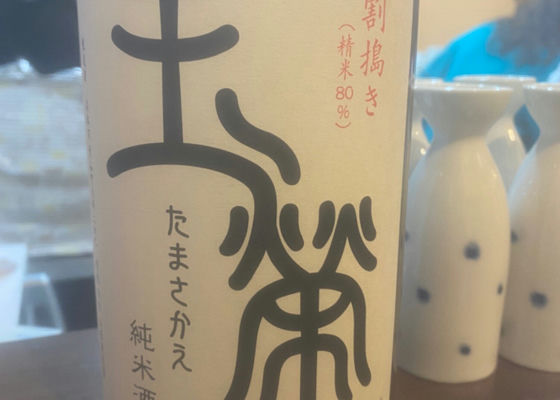 割搗き
（精米80％）
玉榮
たまさかえ
純米酒